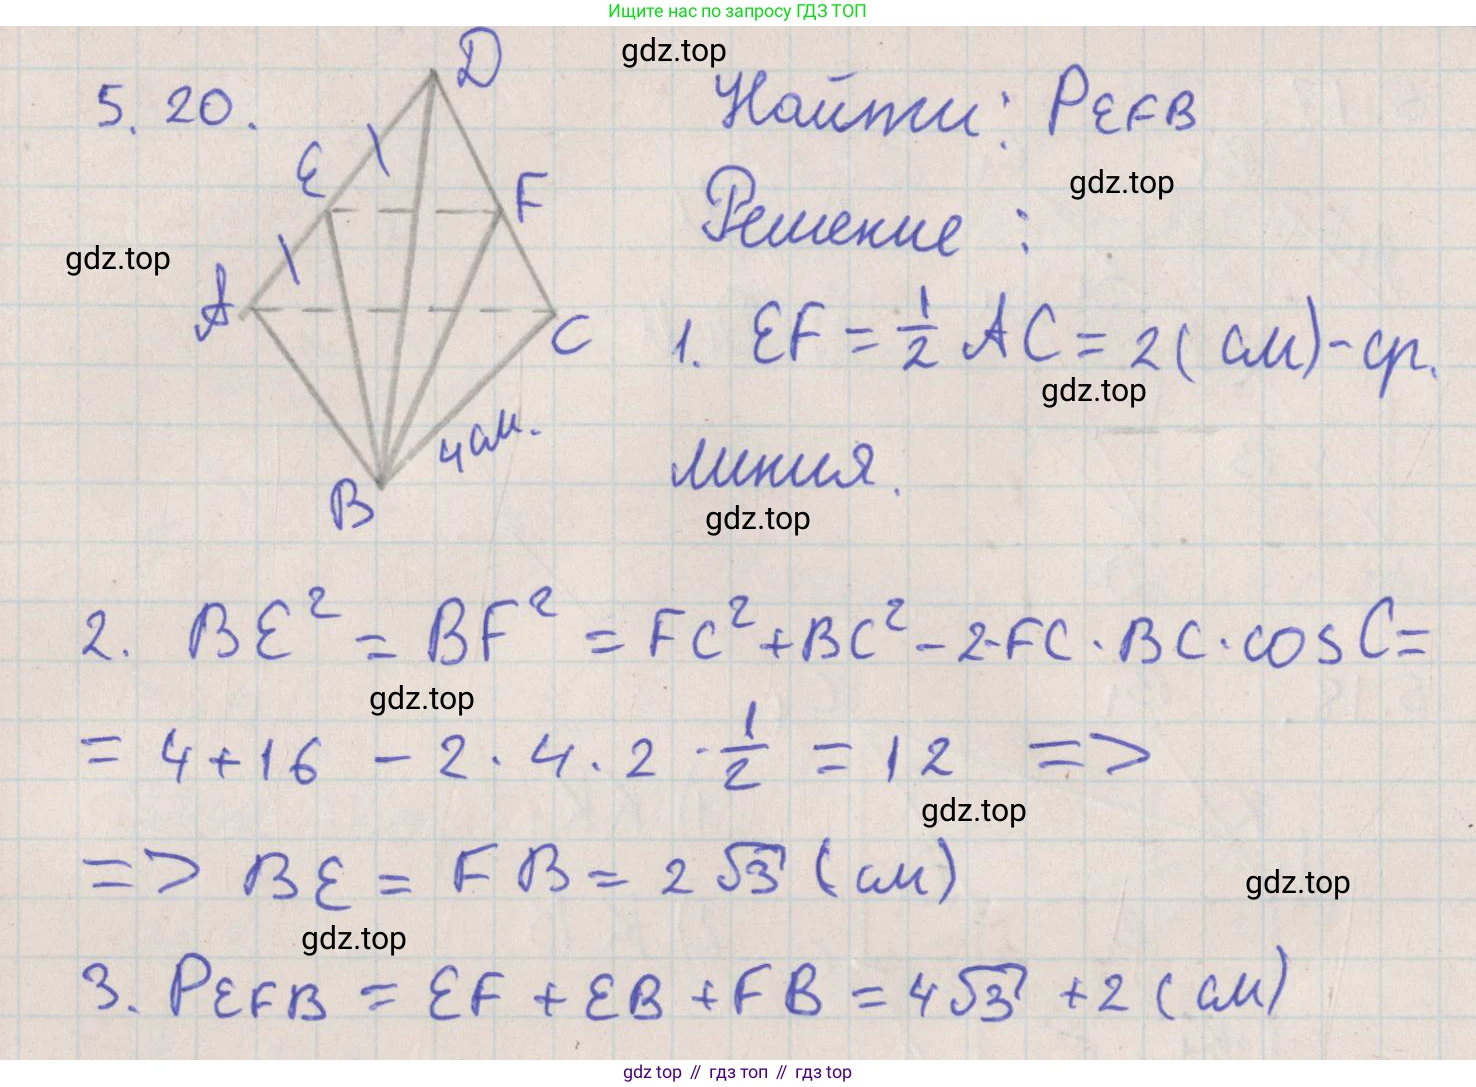 Ищите нас по запросу ГДЗ ТОП
gdz.top
5.20.
D
Найти: PEFB
E
F
gdz.top
Решение:
gdz.top
A
C
1. EF = 1/2 AC = 2 (см) - ср.
gdz.top
4 см.
линия.
B
gdz.top
2. BE² = BF² = FC² + BC² - 2·FC·BC·cosC =
gdz.top
= 4 + 16 - 2·4·2·1/2 = 12 =>
gdz.top
=> BE = FB = 2√3 (см)
gdz.top
gdz.top
3. PEFB = EF + EB + FB = 4√3 + 2 (см)
gdz.top // гдз топ // гдз top